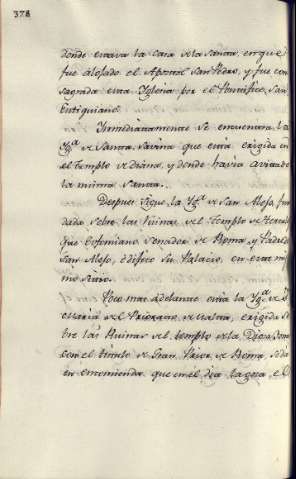 378
donde estava la casa de la Santa, en que
fue alojado el Apostol San Pedro, y fue con
sagrada esta Yglesia por el Pontifice San
Eutiquiano.
Inmediatamente se encuentra la
Ygª de Santa Savina que está erigida en
el Templo de Diana, y donde havia
la misma Santa.
Despues sigue la Ygª de San Alejo, fun
dada sobre las Ruinas del Templo de
que Eufemiano Senador de Roma, y Padre de
San Alejo, edificó su Palacio, en este mis
mo sitio.
Poco mas adelante está la Ygª de S
Maria del Priorato de Malta, erigida so
bre las Ruinas del templo de la Diosa
con el titulo de Gran Prior de Roma, se da
en encomienda, que en el dia la goza, el